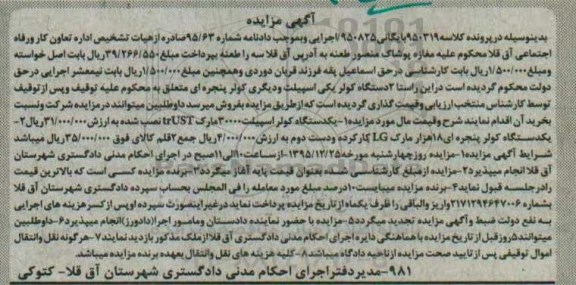 آگهی مزایده
بدینوسیله درپرونده کلاسه ۹۵۰۳۱۹بایگانی۹۵۰۸۲۵اجرایی وبموجب دادنامه شماره ۹۵/۶۳صادره ازهیات تشخیص اداره تعاون کارورفاه
اجتماعی آق قلا محکوم علیه مغازه پوشاک منصور طعنه به آدرس آق قلا سه را طعنه بپرداخت مبلغ۳۹/۲۶۶/۵۵۰ریال بابت اصل خواسته
ومبلغ۱/۵۰۰/۰۰۰ریال بابت کارشناسی درحق اسماعیل یقه فرزند قربان دوردی وهمچنین مبلغ۱/۵۰۰/۰۰۰ریال بابت نیمعشر اجرایی درحق
دولت محکوم گردیده است دراین راستا ۲دستگاه کولر یکی اسپیلت ودیگری کولر پنجره ای متعلق به محکوم علیه توقیف وپس ازتوقیف
توسط کارشناس منتخب ارزیابی وقیمت گذاری گردیده است که ازطریق مزایده بفروش میرسد داوطلبین میتوانند درمزایده شرکت ونسبت
بخرید آن اقدام نمایند شرح وقیمت مال مورد مزایده۱-یکدستگاه کولر اسپیلت۳۰۰۰۰مارک trUST نصب شده به ارزش۳۱/۰۰۰/۰۰۰ریال۲-
یکدستگاه کولر پنجره ای۱۸هزار مارک LG کارکرده ودست دوم به ارزش۴/۰۰۰/۰۰۰ریال جمع۲قلم کالای فوق ۳۵/۰۰۰/۰۰۰ریال میباشد
شرایط آگهی مزایده۱-مزایده روزچهارشنبه مورخه۱۳۹۵/۱۲/۲۵-ازساعت۱۰الی۱۱صبح در اجرای احکام مدنی دادگستری شهرستان
آق قلا انجام میپذیرد۲-مزایده ازمبلغ کارشناسی شده بعنوان قیمت پایه آغاز میگردد۳-برنده مزایده کسی است که بالاترین قیمت
رادرجلسه قبول نماید۴-برنده مزایده میبایست۱۰درصد مبلغ مورد معامله را فی المجلس بحساب سپرده دادگستری شهرستان آق قلا
بشماره ۲۱۷۱۲۹۴۶۴۷۰۰۶واریز والباقی را ظرف یکماه ازتاریخ مزایده پرداخت نماید درغیراینصورت سپرده اوپس ازکسرهزینه های اجرایی
به نفع دولت ضبط وآگهی مزایده تجدید میگردد۵-مزایده با حضور نماینده دادستان ومامور اجرا(دادورز)انجام میپذیرد۶-داوطلبین
میتوانند۵روزقبل ازتاریخ مزایده با هماهنگی دایره اجرای احکام مدنی دادگستری آق قلا ازملک مذکور بازدید نمایند۷-هرگونه نقل وانتقال
اموال توقیفی پس ازتایید صحت مزایده ازناحیه دادگاه میباشد۸-کلیه هزینه های نقل وانتقال بعهده برنده مزایده میباشد.
۹۸۱-مدیردفتراجرای احکام مدنی دادگستری شهرستان آق قلا- کتوکی